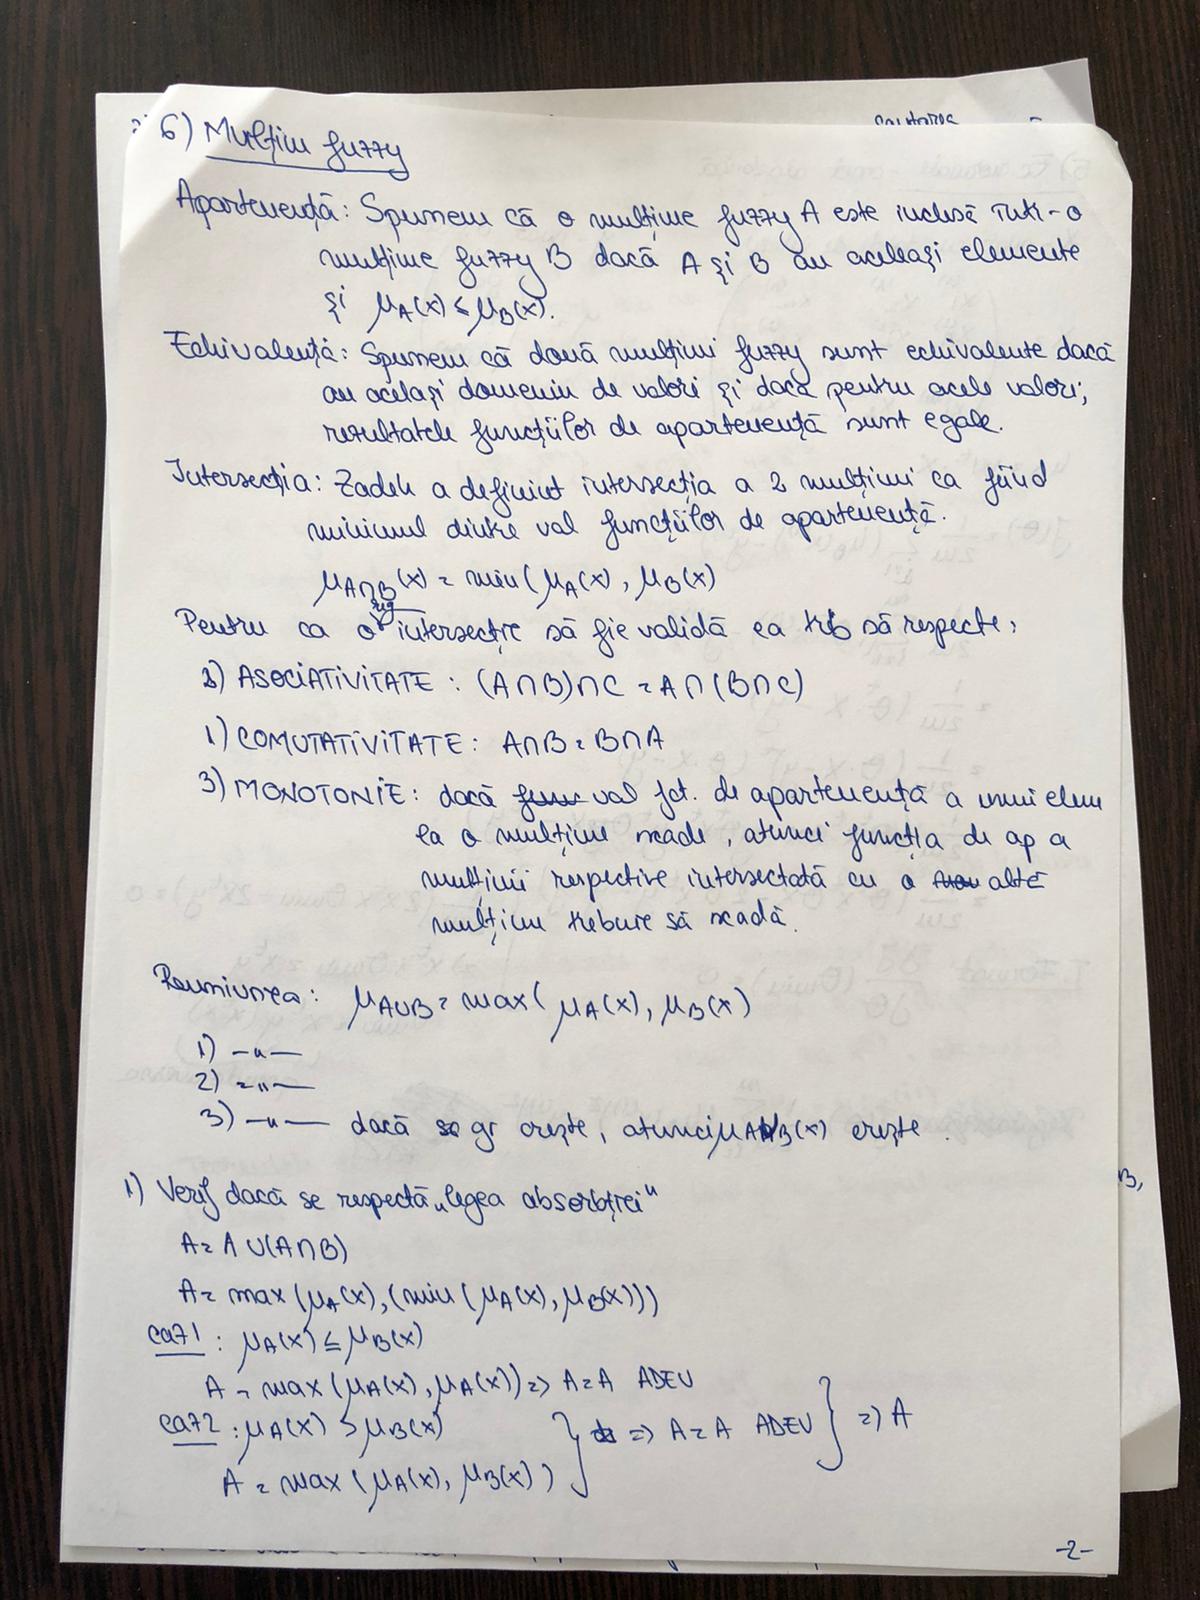 6) Mulțimi fuzzy
Apartenență: Spunem că o mulțime fuzzy A este inclusă într-o
mulțime fuzzy B dacă A și B au aceleași elemente
și μA(x) ≤ μB(x).
Echivalență: Spunem că două mulțimi fuzzy sunt echivalente dacă
au același domeniu de valori și dacă pentru acele valori,
rezultatele funcțiilor de apartenență sunt egale.
Intersecția: Zadeh a definit intersecția a 2 mulțimi ca fiind
minimul dintre val funcțiilor de apartenență.
μA∩B(x) = min(μA(x), μB(x)
Pentru ca o intersecție să fie validă ea trb să respecte:
2) ASOCIATIVITATE : (A∩B)∩C = A∩(B∩C)
1) COMUTATIVITATE: A∩B = B∩A
3) MONOTONIE: dacă val fct. de apartenență a unui elem
la o mulțime scade, atunci funcția de ap a
mulțimii respective intersectată cu o altă
mulțime trebuie să scadă.
Reuniunea: μA∪B = max( μA(x), μB(x)
1) —"—
2) —"—
3) —"— dacă gr crește, atunci μA∪B(x) crește.
1) Verif dacă se respectă „legea absorbției"
A = A ∪(A∩B)
A = max(μA(x), (min(μA(x), μB(x)))
caz1 : μA(x) ≤ μB(x)
A = max (μA(x), μA(x)) => A = A ADEV
caz2 : μA(x) > μB(x)
A = max (μA(x), μB(x)) } => A = A ADEV } => A
-2-